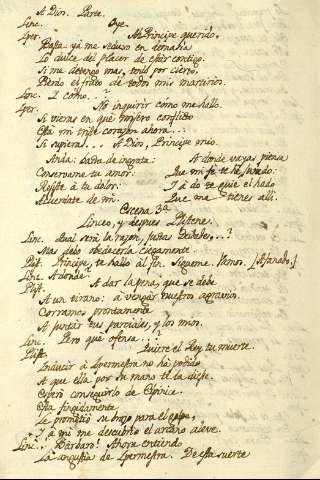 A Dios. Parte.
Linc. Oye.
Iper. Ah Principe querido.
Basta: ya me reduxo en demasia
Lo dulce del placer de estar contigo.
Si me detengo mas, tenlo por cierto,
Pierdo el fruto de todos mis martirios.
Linc. I como..?
Iper. No inquirir como me hallo.
Si vieras en què misero conflicto
Està mi triste corazon ahora...:
Si supiera... A Dios, Principe mio.
Anda: nada de ingrata: A donde vayas piensa
Conservame tu amor. Que mi fe te he jurado:
Resiste à tu dolor: I à do te guie el hado
Acuerdate de mi. Que me tienes alli.
Escena 3ª
Linceo, y despues Plistene.
Linc. Qual serà la razon, justas Deidades...?
Mas debo obedecerla ciegamente.
Plist. Principe, te hallo al fin. Sigueme. Venor. [Afanado.]
Linc. A donde?
Plist. A dar la pena, que se debe
A un tirano: à vengar nuestros agravios.
Corramos prontamente
A juntar tus parciales, y los mios.
Linc. Pero que ofensa...?
Plist. Quiere el Rey tu muerte.
Inducir à Ipermestra no ha podido
A que ella por su mano te la diese.
Esperò conseguirlo de Elpinice.
Ella fingidamente
Le prometiò su brazo para el golpe,
Y à mi me descubriò el arcano aleve.
Linc. Barbaro! Ahora entiendo
La angustia de Ipermestra. De esta suerte